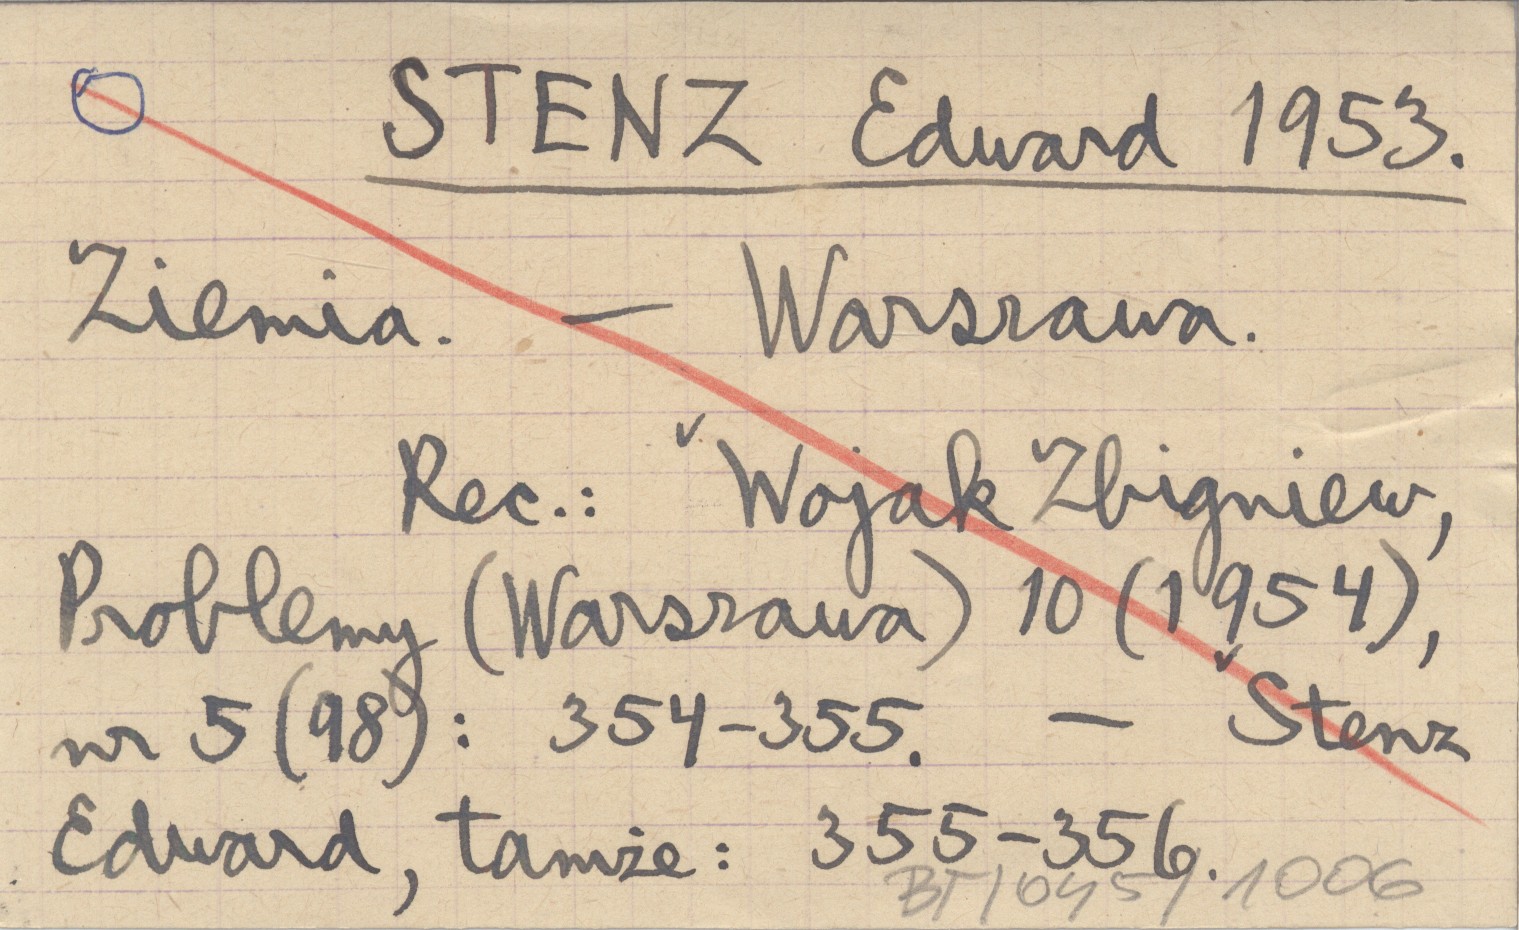 STENZ Edward 1953.
Ziemia. — Warszawa.
Rec.: Wojak Zbigniew,
Problemy (Warszawa) 10 (1954),
nr 5 (98): 354-355. — Stenz
Edward, tamże: 355-356.
BT/045/1006